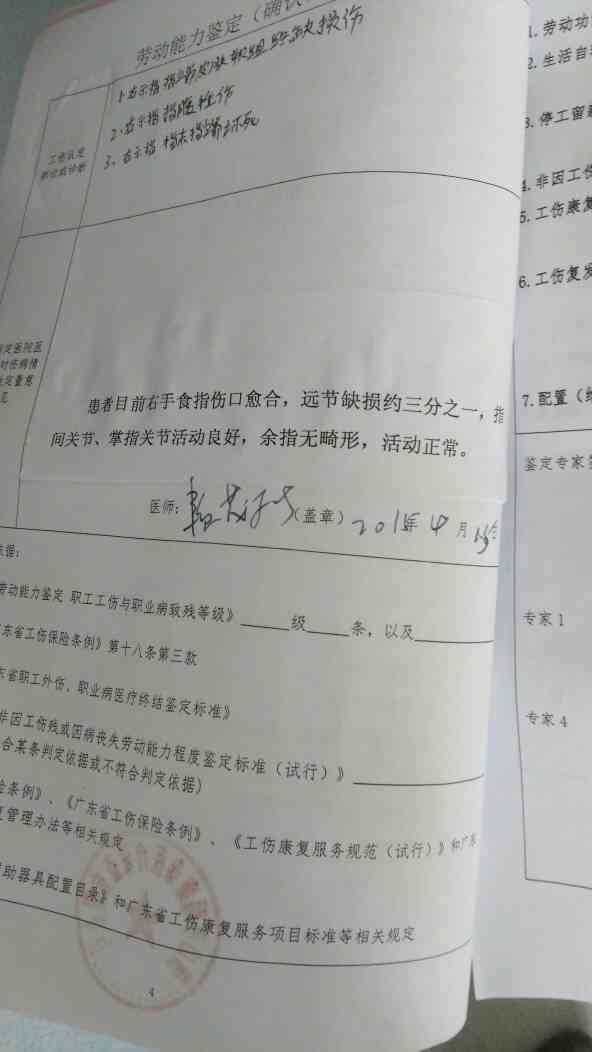 劳动能力鉴定（确认
1.右示指指端皮肤软组织缺损伤
2、右示指指腹挫伤
3、右示指指末指端坏死
工伤认定
患者目前右手食指伤口愈合，远节缺损约三分之一，指
间关节、掌指关节活动良好，余指无畸形，活动正常。
医师：
（盖章）201 年 4 月
依据：
劳动能力鉴定 职工工伤与职业病致残等级》 级 条，以及
东省工伤保险条例》第十八条第三款
东省职工外伤、职业病医疗终结鉴定标准》
非因工伤残或因病丧失劳动能力程度鉴定标准（试行）》
合某条判定依据或不符合判定依据）
险条例》、《广东省工伤保险条例》、《工伤康复服务规范（试行）》和广东
管理办法等相关规定
助器具配置目录》和广东省工伤康复服务项目标准等相关规定
4
1.劳动功
2.生活自
3.停工留
4.非因工伤
5.工伤康复
6.工伤复发
7.配置（
鉴定专家
专家1
专家4